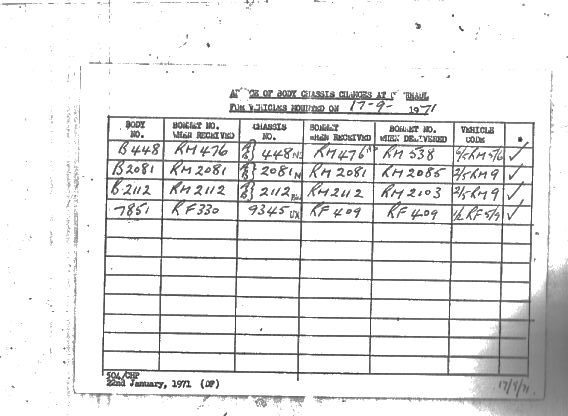 OF BODY CHASSIS CHANGES AT
FOR VEHICLES MOUNTED ON 17-9- 1971
BODY NO. BONNET NO. WHEN RECEIVED CHASSIS NO. BONNET WHEN RECEIVED BONNET NO. WHEN DELIVERED VEHICLE CODE *
B448 RM476 A} B} 448 RM476 RM 538 RM5/6 ✓
B2081 RM 2081 A} B} 2081 RM 2081 RM 2085 2/5RM9 ✓
B2112 RM 2112 A} B} 2112 RM2112 RM 2103 2/5RM9 ✓
7851 RF330 9345 UX RF 409 RF 409 1/2 RF 5/9 ✓
504/CHP
22nd January, 1971 (DP)
17/9/71